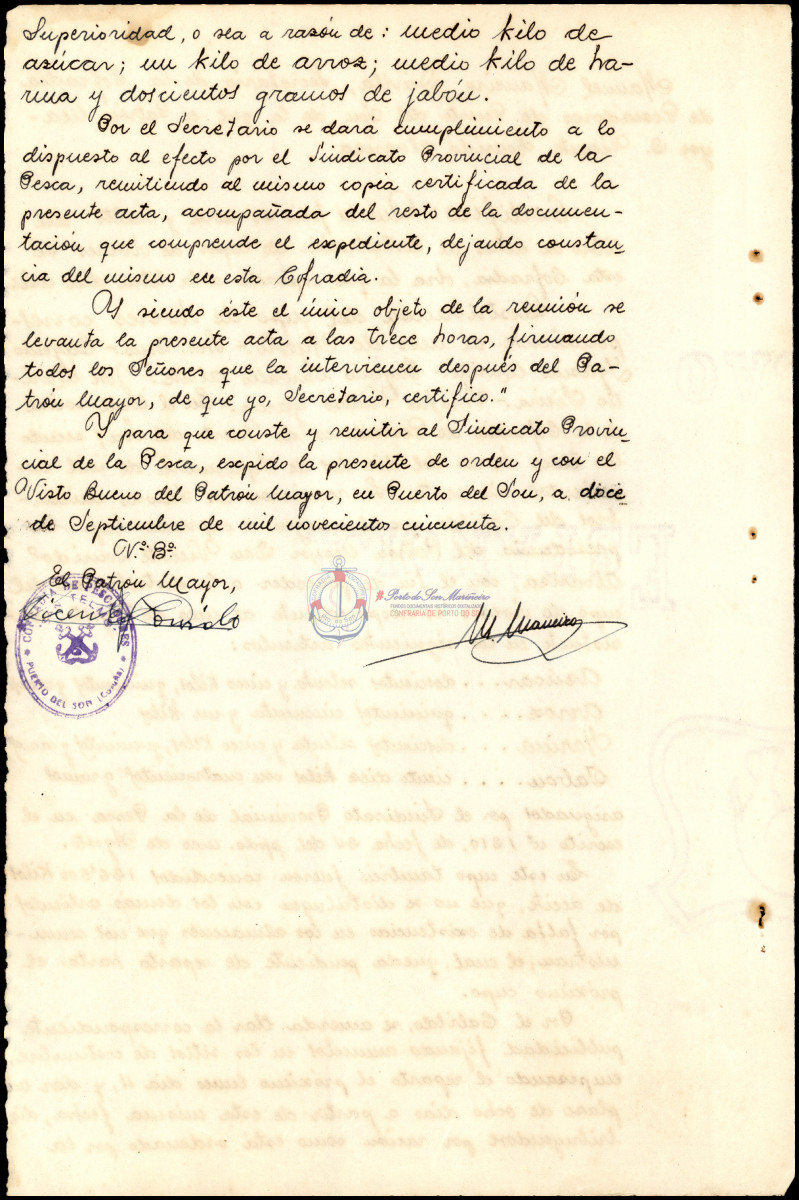 Superioridad, o sea a razón de: medio kilo de
azúcar; un kilo de arroz; medio kilo de ha-
rina y doscientos gramos de jabón.
Por el Secretario se dará cumplimiento a lo
dispuesto al efecto por el Sindicato Provincial de la
Pesca, remitiendo al mismo copia certificada de la
presente acta, acompañada del resto de la documen-
tación que comprende el expediente, dejando constan-
cia del mismo en esta Cofradia.
Y siendo éste el único objeto de la reunión se
levanta la presente acta a las trece horas, firmando
todos los Señores que la intervienen después del Pa-
trón Mayor, de que yo, Secretario, certifico."
Y para que conste y remitir al Sindicato Provin-
cial de la Pesca, expido la presente de orden y con el
Visto Bueno del Patrón Mayor, en Puerto del Son, a doce
de Septiembre de mil novecientos cincuenta.
Vº. Bº.
El Patrón Mayor,
Vicente
M. Maneiro
COFRADIA DE PESCADORES
PUERTO DEL SON (Coruña)
Porto de Son Mariñeiro
FONDOS DOCUMENTAIS HISTÓRICOS DIXITALIZADOS
CONFRARÍA DE PORTO DO SON